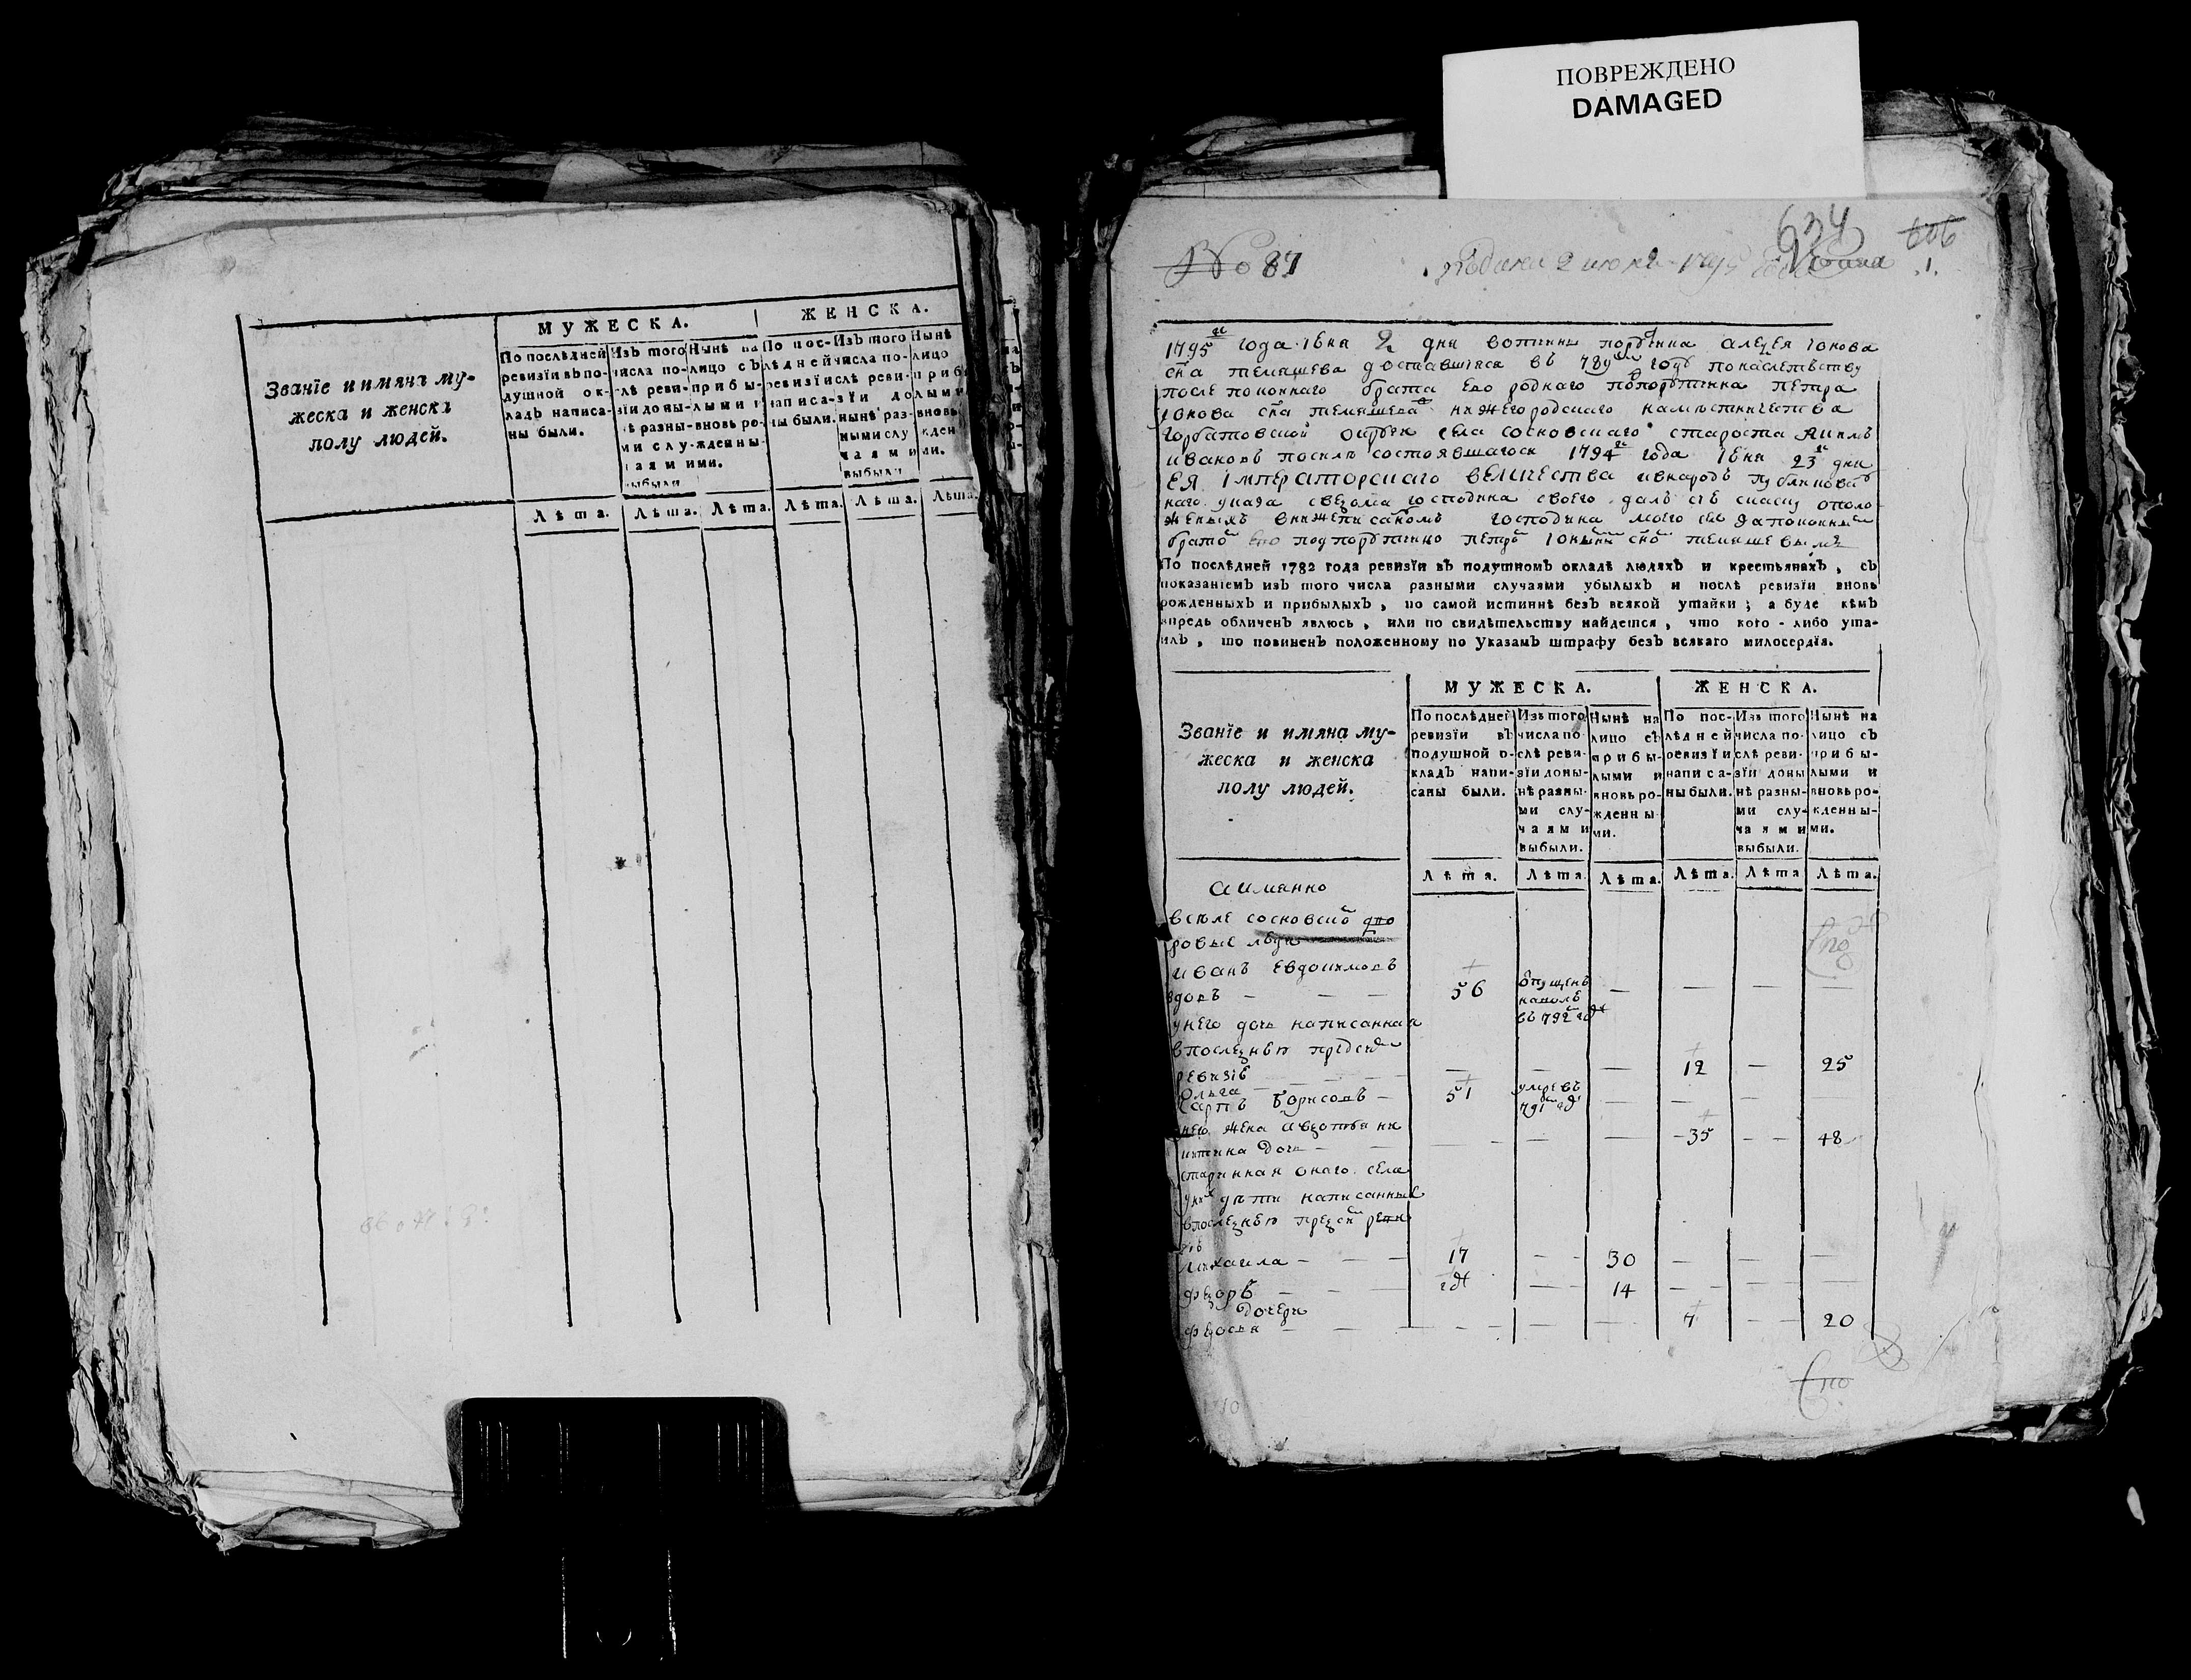 ПОВРЕЖДЕНО
DAMAGED
Званїе и имяна му-
жеска и женска
полу людей.
МУЖЕСКА.
ЖЕНСКА.
По послѣдней
ревизїи въ по-
душной ок-
ладъ написа-
ны были.
Изъ того
числа по-
слѣ реви-
зїи доны-
ѣ разны-
ми слу-
чаями
выбыли
Нынѣ на
лицо съ
прибы-
лыми и
вновь ро-
жденны-
ми.
По пос-
лѣдней
ревизїи
написа-
ны были.
Изъ того
числа по-
слѣ реви-
зїи до
нынѣ раз-
ными слу
чаями
выбыли
Нынѣ
лицо
приб
лыми
вновь
жден
ми.
Лѣта.
Лѣта.
Лѣта.
Лѣта.
Лѣта.
Лѣта.
634
606
№ 87
Подана 2 июня 1795 года
.1.
1795 го года Июня 2 дня вотчины порутчика Алексея Ионова
сна Темяшева доставшися въ 789 м году по наследству
после покойнаго брата ево роднаго подпорутчика Петра
Ионова сна Темяшева нижегородскаго намѣстничества
Горбатовской округи села Сосковскаго староста Якимъ
Ивановъ по силѣ состоявшагося 1794 го года Июня 23 го дня
Ея Императорскаго Величества и в народъ публикован
наго указа с ведома господина своего далъ сию скаску о поло
женыхъ в нижеписаномъ господина моего сел за покойным
братом ево подпорутчико Петро Ионыны сно Темяшевымъ
По послѣдней 1782 года ревизїи въ подушномъ окладѣ людяхъ и крестьянахъ, съ
показанїемъ изъ того числа разными случаями убылыхъ и послѣ ревизїи вновь
рожденныхъ и прибылыхъ, по самой истиннѣ безъ всякой утайки; а буде кѣмъ
впредь обличенъ явлюсь, или по свидѣтельству найдется, что кого-либо ута-
илъ, то повиненъ положенному по Указамъ штрафу безъ всякаго милосердїя.
Званїе и имяна му-
жеска и женска
полу людей.
МУЖЕСКА.
ЖЕНСКА.
По послѣдней
ревизїи въ
подушной о-
кладъ напи-
саны были.
Изъ того
числа по-
слѣ реви-
зїи доны-
нѣ разны-
ми слу-
чаями
выбыли.
Нынѣ на
лицо съ
прибы-
лыми и
вновь ро-
жденны-
ми.
По пос-
лѣдней
ревизїи
написа-
ны были.
Изъ того
числа по-
слѣ реви-
зїи доны
нѣ разны-
ми слу-
чаями
выбыли.
Нынѣ на
лицо съ
прибы-
лыми и
вновь ро-
жденны-
ми.
Лѣта.
Лѣта
Лѣта.
Лѣта.
Лѣта
Лѣта.
А имянно
в селе Сосковско дво
ровые люди
Иванъ Евдокимовъ
вдовъ — 56 отпущенъ на волю въ 792 м
у него дочь написанная
в последнею пред сим
ревизiю
Ольга 12 — 25
Карпъ Борисовъ — 51 умре въ 791 м
у него жена Авдотья ни
китина дочь — 35 — 48
старинная онаго села
у них дѣти написанныя
в последнею пред сим реви
зiю
Михаила — 17 — 30
Федоръ — 14
дочери
Федосья — 7 — 20